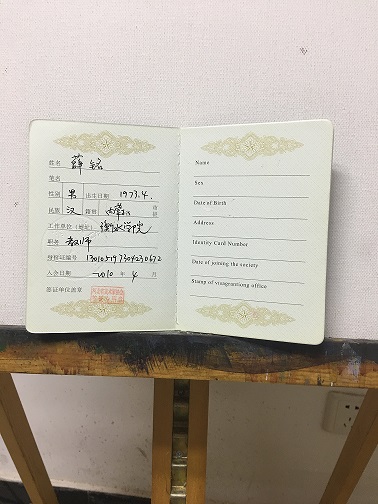 姓名 薛铭
笔名
性别 男 出生日期 1973.4.
民族 汉 籍贯 内蒙 省 市 县
工作单位(地址) 衡水学院
职务 教师
身份证编号 130105197304230672
入会日期 2010 年 4 月
签证单位盖章
Name
Sex
Date of Birth
Address
Identity Card Number
Date of joining the society
Stamp of visagrantiong office